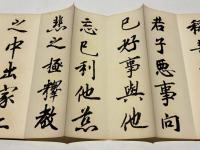 稱草
君子惡事向
己好事與他
忘己利他慈
悲之極釋教
之中出家二